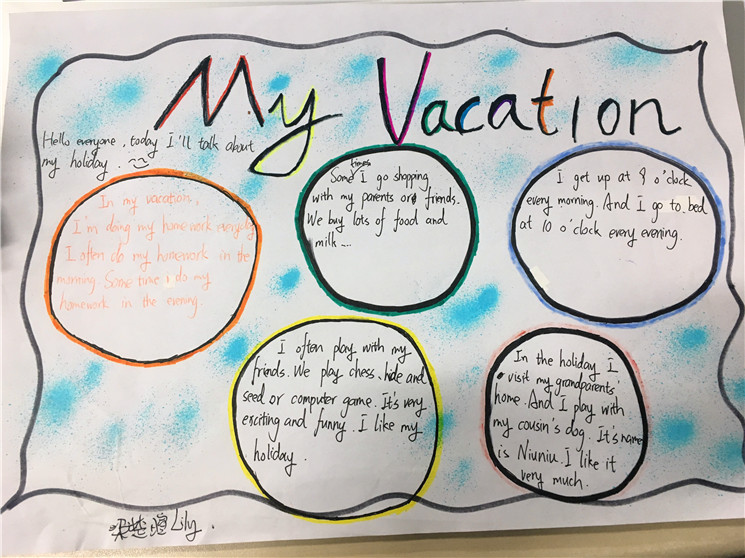 My Vacation
Hello everyone, today I'll talk about
my holiday.
In my vacation,
I'm doing my homework everyday
I often do my homework in the
morning. Some time i do my
homework in the evening.
Sometimes I go shopping
with my parents or friends.
We buy lots of food and
milk...
I get up at 9 o'clock
every morning. And I go to bed
at 10 o'clock every evening.
I often play with my
friends. We play chess, hide and
seed or computer game. It's very
exciting and funny. I like my
holiday.
In the holiday I
visit my grandparents'
home. And I play with
my cousin's dog. It's name
is Niuniu. I like it
very much.
Lily.